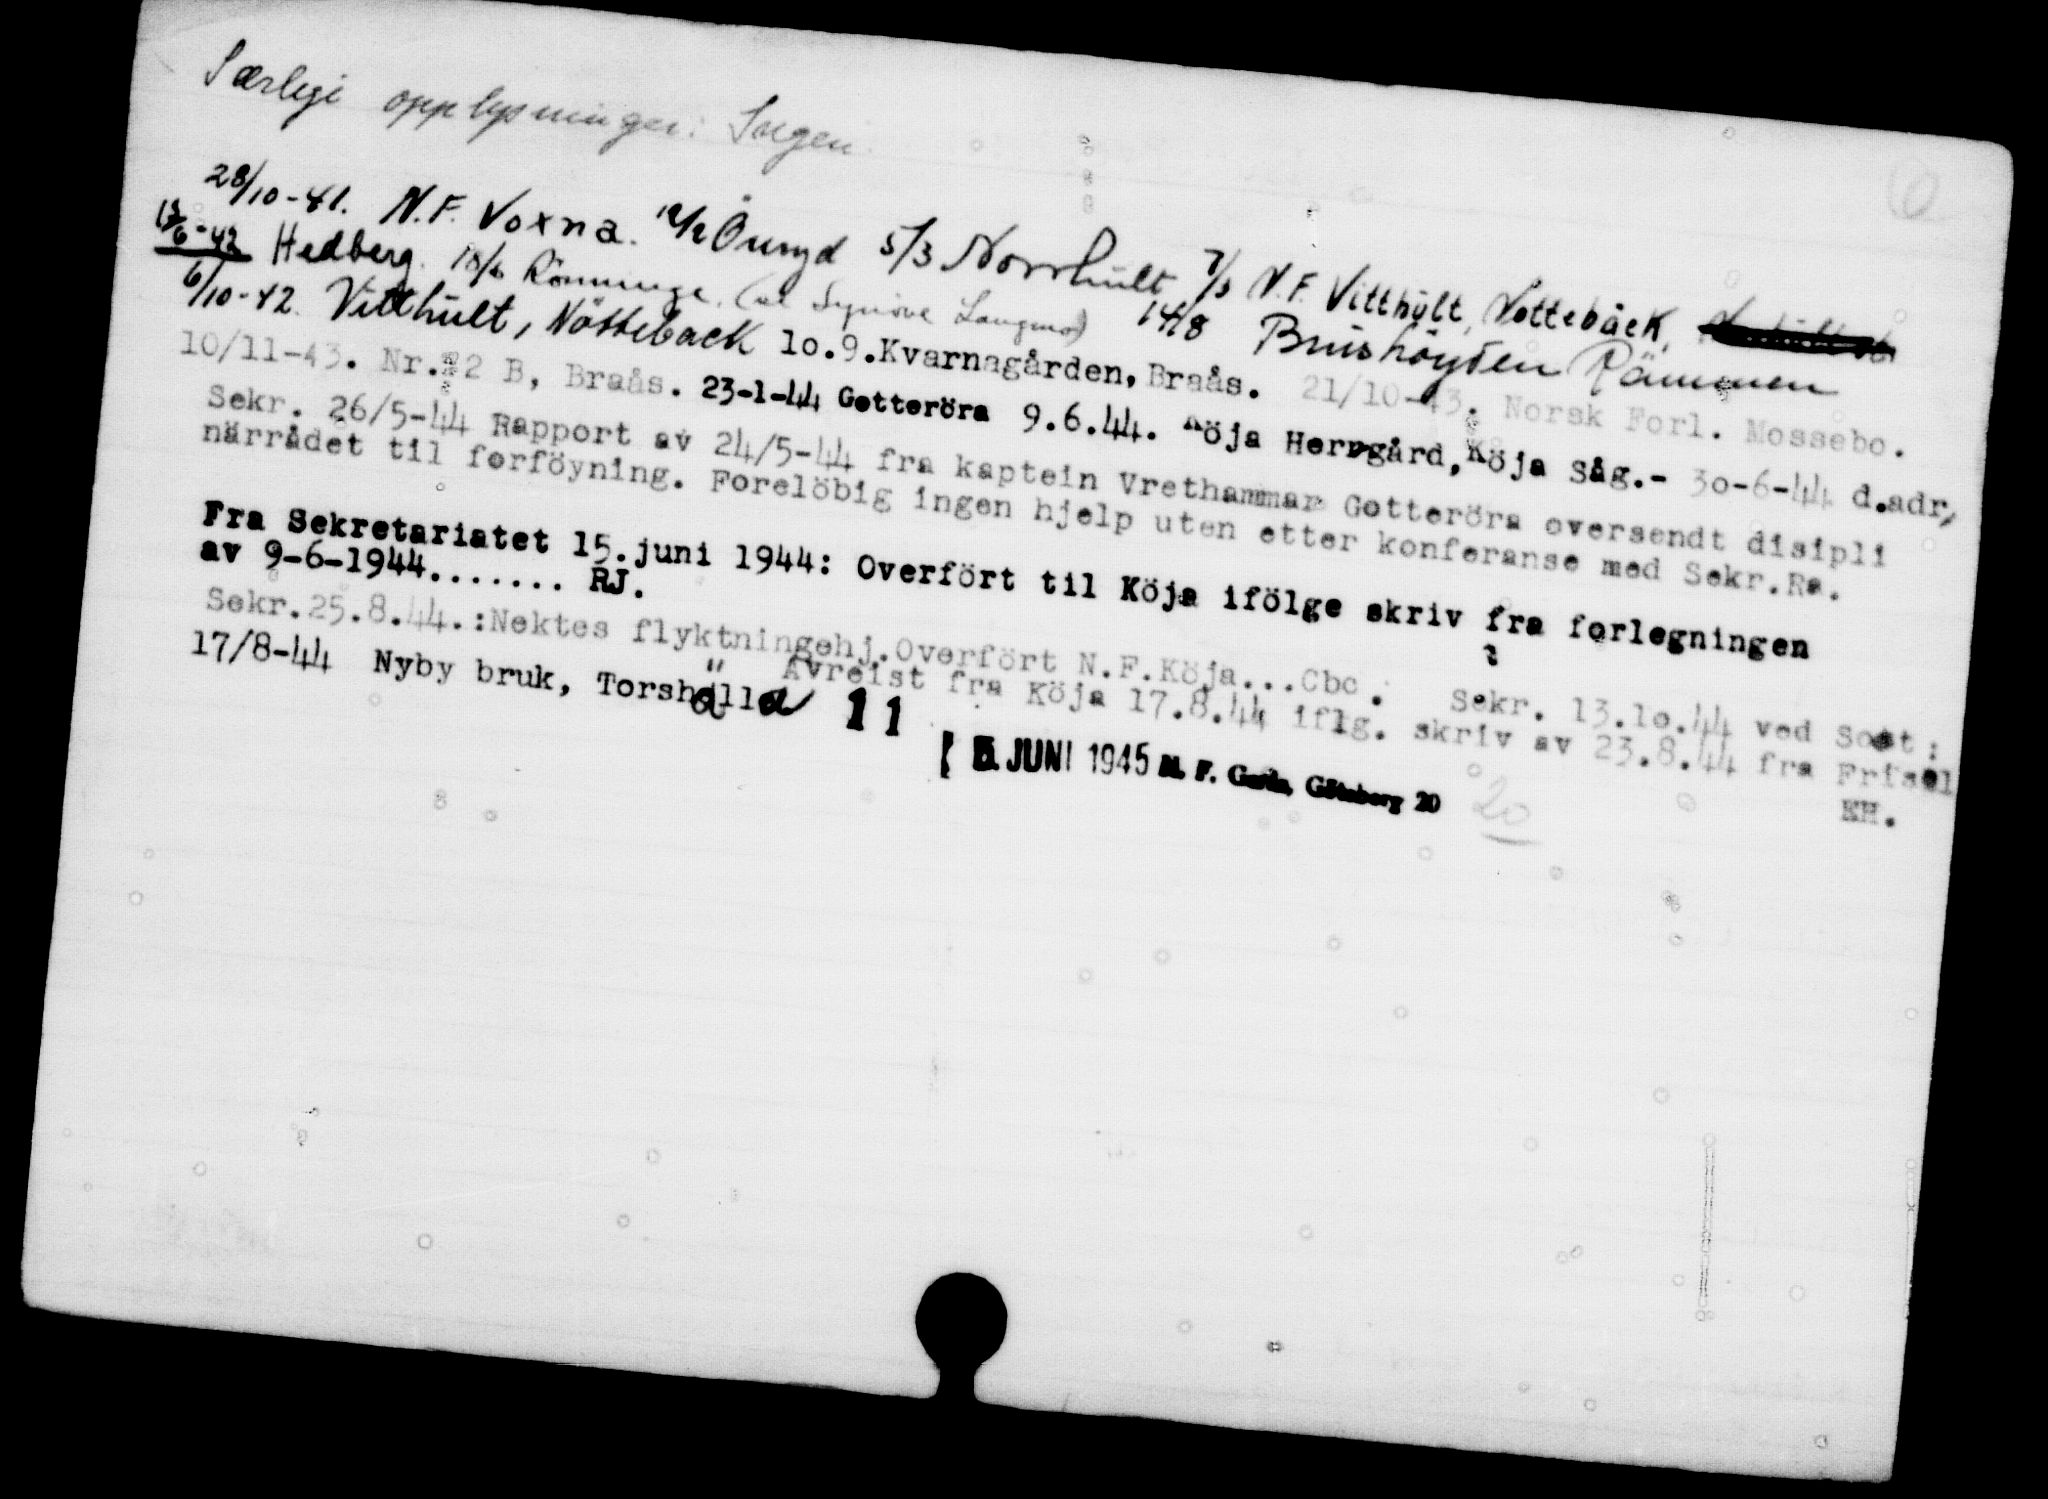 Særlige opplysninger: Ingen
28/10-41. N.F. Voxna. 12/2 Öuryd 5/3 Norrhult 7/3 N.F. Vitthult, Nottebäck,
13/6-42 Hedberg. 18/6 Rönninge. (se Synöve Langmo) 14/8 Brushöyden Rämmen
6/10-42. Vitthult, Nöttebäck 10.9.Kvarnagården, Braås. 21/10-43. Norsk Forl. Mossebo.
10/11-43. Nr. 2 B, Braås. 23-1-44 Gotteröra 9.6.44. Köja Herrgård, Köja Såg.- 30-6-44 d.adr,
Sekr. 26/5-44 Rapport av 24/5-44 fra kaptein Vrethammar Gotteröra oversendt disipli
närrådet til forföyning. Forelöbig ingen hjelp uten etter konferanse med Sekr.Ra.
Fra Sekretariatet 15.juni 1944: Overfört til Köja ifölge skriv fra forlegningen
av 9-6-1944....... RJ.
Sekr.25.8.44.:Nektes flyktningehj.Overfört N.F.Köja...Cbc. Sekr. 13.10.44 ved Sost:
Avreist fra Köja 17.8.44 iflg. skriv av 23.8.44 fra Frisel
17/8-44 Nyby bruk, Torshälla 11 KH.
5. JUNI 1945 N. F. Gerda, Göteborg 20 20